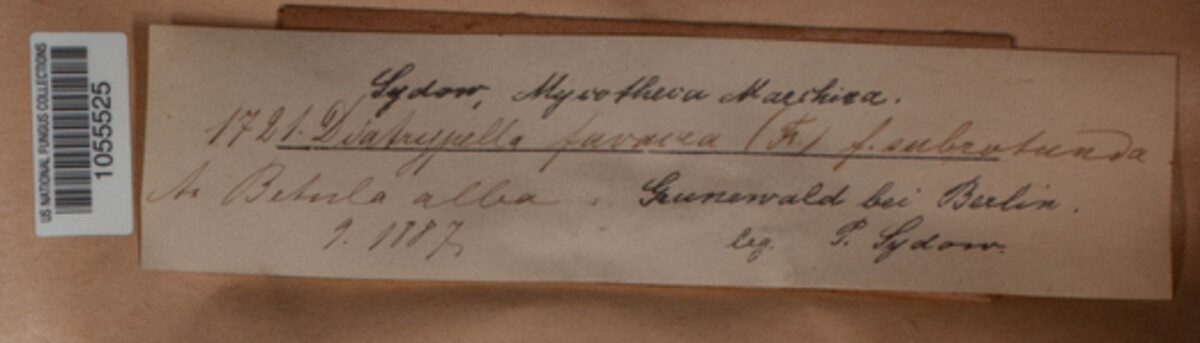 US NATIONAL FUNGUS COLLECTIONS
1055525
Sydow, Mycotheca Marchica.
1721. Diatrypella favacea (Fr.) f. subrotunda
Betula alba. Grunewald bei Berlin.
9. 1887. leg. P. Sydow.